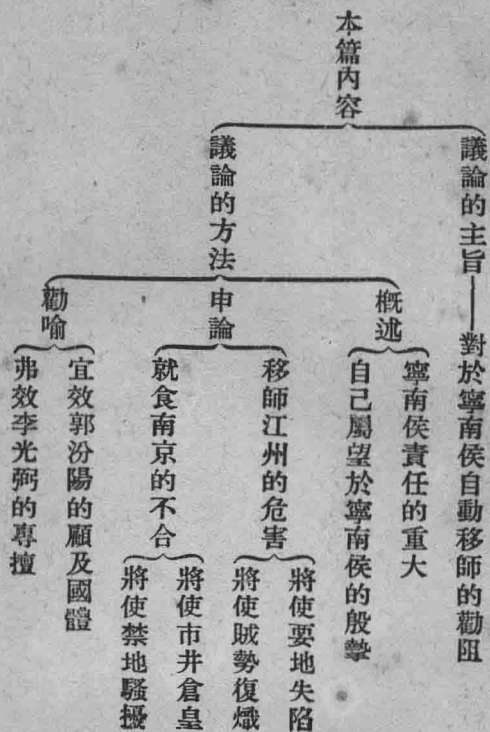 本篇內容
議論的主旨——對於寧南侯自動移師的勸阻
議論的方法
概述
寧南侯責任的重大
自己屬望於寧南侯的殷摯
申論
移師江州的危害
將使要地失陷
將使賊勢復熾
就食南京的不合
將使市井倉皇
將使禁地騷擾
勸喻
宜效郭汾陽的顧及國體
弗效李光弼的專擅